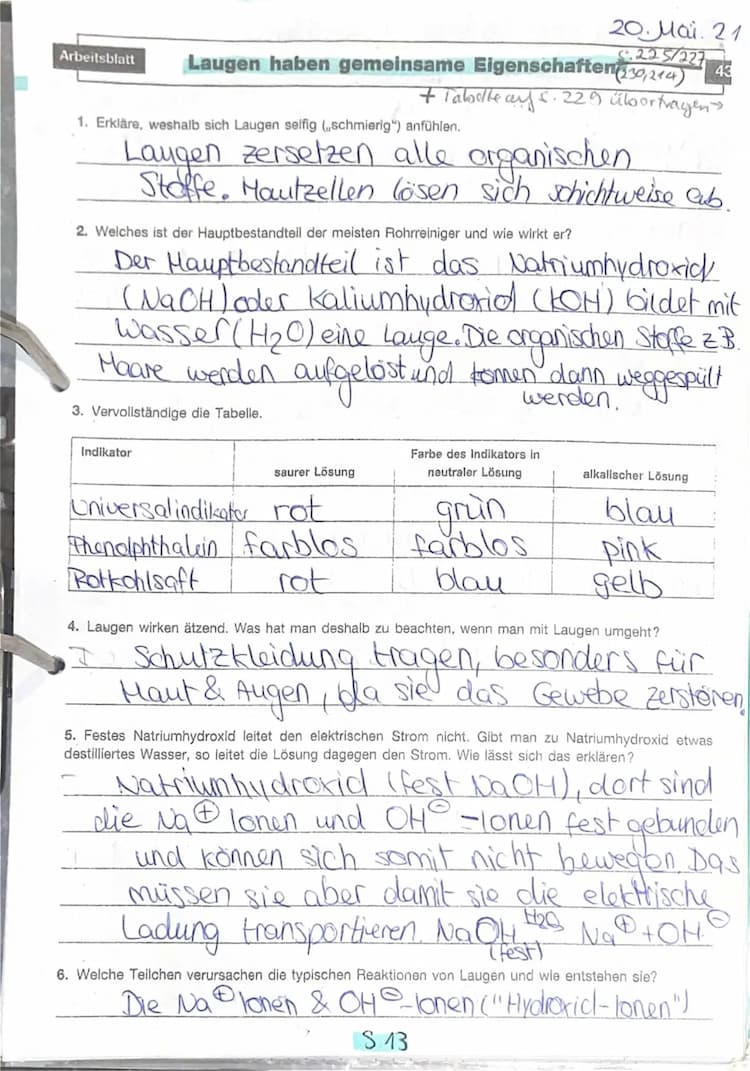 20. Mai. 21
Arbeitsblatt
Laugen haben gemeinsame Eigenschaften
S. 225/227
(230,214)
43
+ Tabelle auf S. 229 übertragen →
1. Erkläre, weshalb sich Laugen seifig („schmierig“) anfühlen.
Laugen zersetzen alle organischen
Stoffe. Hautzellen lösen sich schichtweise ab.
2. Welches ist der Hauptbestandteil der meisten Rohrreiniger und wie wirkt er?
Der Hauptbestandteil ist das Natriumhydroxid
(NaOH) oder Kaliumhydroxid (KOH) bildet mit
Wasser (H2O) eine Lauge. Die organischen Stoffe z.B.
Haare werden aufgelöst und können dann weggespült
werden.
3. Vervollständige die Tabelle.
Indikator
Farbe des Indikators in
saurer Lösung neutraler Lösung alkalischer Lösung
Universalindikator rot grün blau
Phenolphthalein farblos farblos pink
Rotkohlsaft rot blau gelb
4. Laugen wirken ätzend. Was hat man deshalb zu beachten, wenn man mit Laugen umgeht?
Schutzkleidung tragen, besonders für
Haut & Augen, da sie das Gewebe zerstören.
5. Festes Natriumhydroxid leitet den elektrischen Strom nicht. Gibt man zu Natriumhydroxid etwas
destilliertes Wasser, so leitet die Lösung dagegen den Strom. Wie lässt sich das erklären?
- Natriumhydroxid (fest NaOH), dort sind
die Na⊕ Ionen und OH⊖-Ionen fest gebunden
und können sich somit nicht bewegen. Das
müssen sie aber damit sie die elektrische
Ladung transportieren. NaOH (fest) H2O Na⊕ + OH⊖
6. Welche Teilchen verursachen die typischen Reaktionen von Laugen und wie entstehen sie?
Die Na⊕ Ionen & OH⊖-Ionen ("Hydroxid-Ionen")
S 13